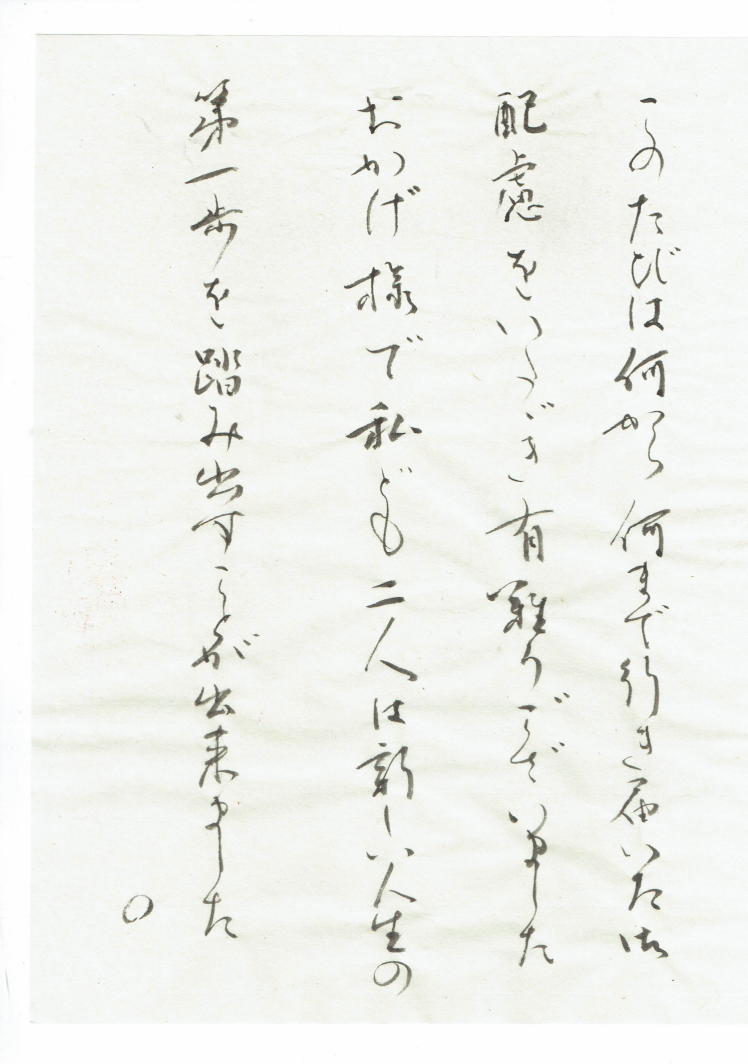 このたびは何から何まで行き届いた御
配慮をいただき有難うございました
おかげ様で私ども二人は新しい人生の
第一歩を踏み出すことが出来ました